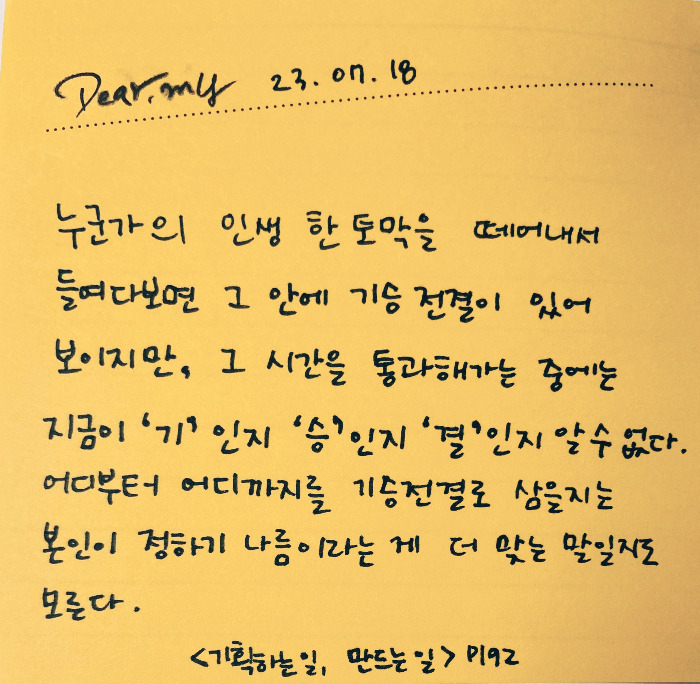 Dear.my 23.07.18
누군가의 인생 한 토막을 떼어내서
들여다보면 그 안에 기승전결이 있어
보이지만, 그 시간을 통과해가는 중에는
지금이 '기'인지 '승'인지 '결'인지 알 수 없다.
어디부터 어디까지를 기승전결로 삼을지는
본인이 정하기 나름이라는 게 더 맞는 말일지도
모른다.
<기획하는 일, 만드는 일> P192